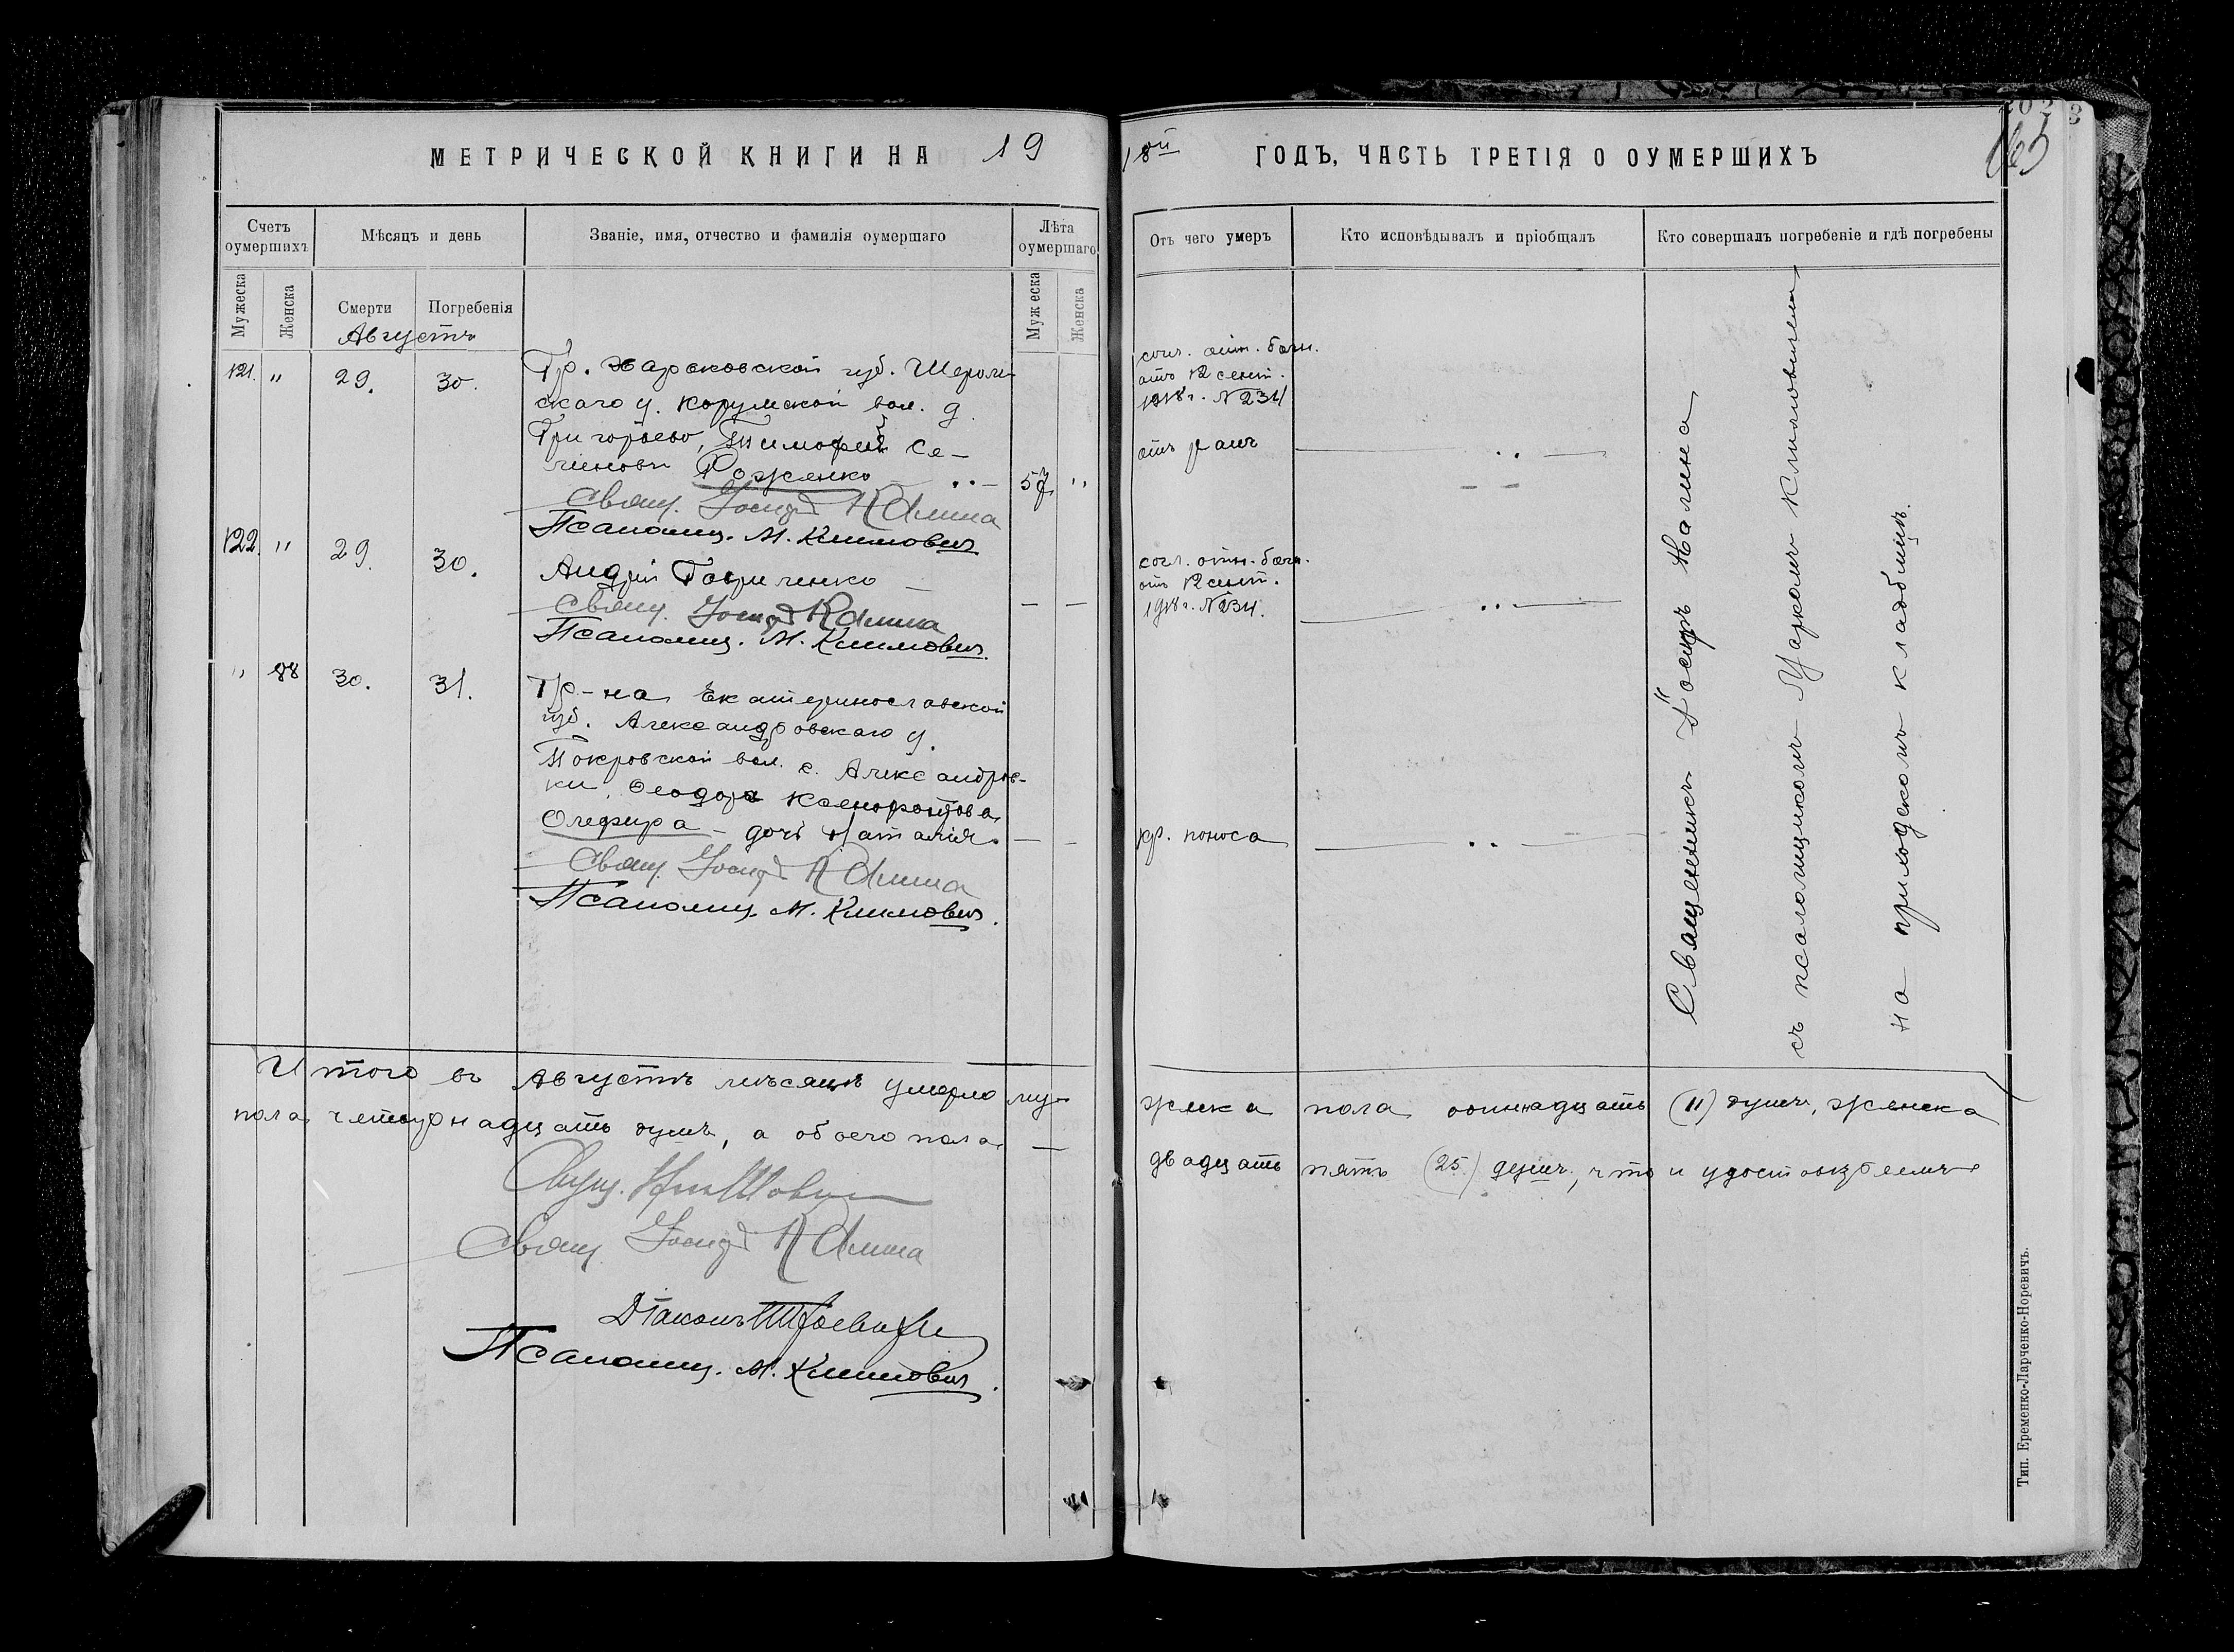 МЕТРИЧЕСКОЙ КНИГИ НА 19
Счетъ оумершихъ
Мѣсяцъ и день
Званіе, имя, отчество и фамилія оумершаго
Лѣта оумершаго
Мужеска
Женска
Смерти
Погребенія
Мужеска
Женска
Августъ
121. " 29. 30.
Гр. Харьковской губ.
скаго у. вол. д.
Григорьево, Тимофей Се-
меновъ Роженко 57 "
Свящ. Іосифъ Калина
Псаломщ. М. Климович
122. " 29. 30.
Андрій Гавриленко — — —
Свящ. Іосифъ Калина
Псаломщ. М. Климович.
" 88 30. 31.
Гр-на Екатеринославской
губ. Александровскаго у.
Покровской вол. с. Александров-
ки, Ѳеодора Ксенофонтова
Олефира — дочь Наталія.
Свящ. Іосифъ Калина
Псаломщ. М. Климович.
Итого въ Августѣ мѣсяцѣ умерло муж
пола четырнадцать душъ, а обоего пола —
Свящ. Іосифъ Калина
Діаконъ
Псаломщ. М. Климович.
18ой ГОДЪ, ЧАСТЬ ТРЕТІЯ О ОУМЕРШИХЪ
165
Отъ чего умеръ
Кто исповѣдывалъ и пріобщалъ
Кто совершалъ погребеніе и гдѣ погребены
согл. отн. больн.
отъ 12 сент.
1918 г. N 234
отъ ранъ
согл. отн. больн.
отъ 12 сент.
1918 г. N 234.
кр. поноса
Священникъ Іосифъ Калина
съ псаломщикомъ Маркомъ Климовичемъ
на приходскомъ кладбищѣ.
пола одиннадцать (11) душъ, женска
двадцать пять (25) душъ, что и удостовѣряемъ
Тип. Еременко-Ларченко-Норевичъ.